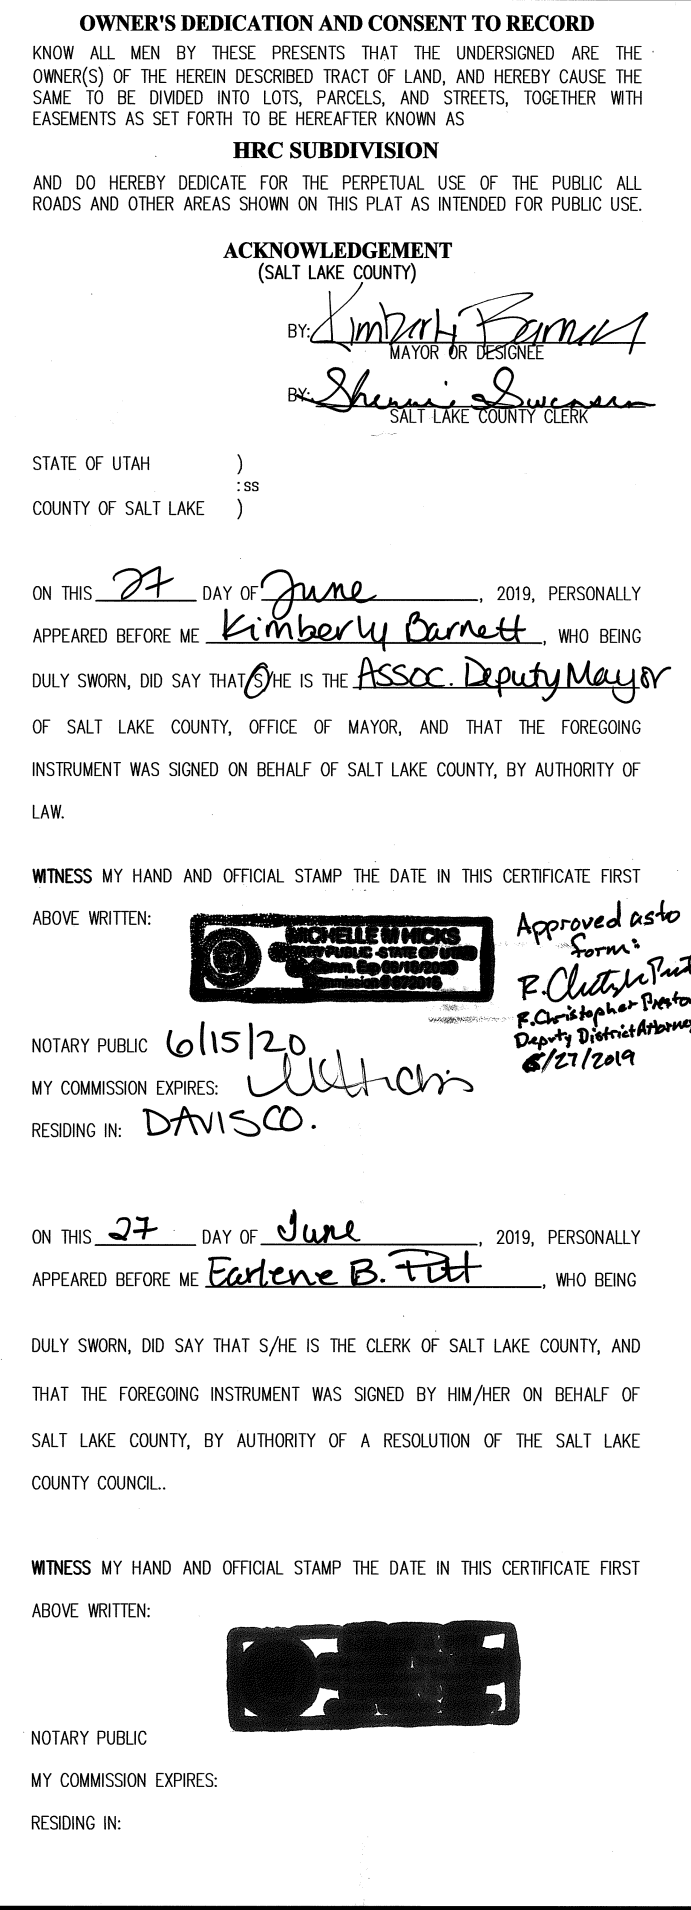 OWNER'S DEDICATION AND CONSENT TO RECORD
KNOW ALL MEN BY THESE PRESENTS THAT THE UNDERSIGNED ARE THE
OWNER(S) OF THE HEREIN DESCRIBED TRACT OF LAND, AND HEREBY CAUSE THE
SAME TO BE DIVIDED INTO LOTS, PARCELS, AND STREETS, TOGETHER WITH
EASEMENTS AS SET FORTH TO BE HEREAFTER KNOWN AS
HRC SUBDIVISION
AND DO HEREBY DEDICATE FOR THE PERPETUAL USE OF THE PUBLIC ALL
ROADS AND OTHER AREAS SHOWN ON THIS PLAT AS INTENDED FOR PUBLIC USE.
ACKNOWLEDGEMENT
(SALT LAKE COUNTY)
BY: Kimberly Barnett
MAYOR OR DESIGNEE
BY: Sherrie Swensen
SALT LAKE COUNTY CLERK
STATE OF UTAH )
:ss
COUNTY OF SALT LAKE )
ON THIS 27 DAY OF June, 2019, PERSONALLY
APPEARED BEFORE ME Kimberly Barnett, WHO BEING
DULY SWORN, DID SAY THAT S/HE IS THE Assoc. Deputy Mayor
OF SALT LAKE COUNTY, OFFICE OF MAYOR, AND THAT THE FOREGOING
INSTRUMENT WAS SIGNED ON BEHALF OF SALT LAKE COUNTY, BY AUTHORITY OF
LAW.
WITNESS MY HAND AND OFFICIAL STAMP THE DATE IN THIS CERTIFICATE FIRST
ABOVE WRITTEN:
MICHELLE M HICKS
NOTARY PUBLIC -STATE OF UTAH
My Comm. Exp 06/15/2020
Commission #
Approved as to
form:
R. Christopher Preston
Deputy District Attorney
6/27/2019
NOTARY PUBLIC 6/15/20
MY COMMISSION EXPIRES:
RESIDING IN: DAVIS CO.
ON THIS 27 DAY OF June, 2019, PERSONALLY
APPEARED BEFORE ME Earlene B. Pitt, WHO BEING
DULY SWORN, DID SAY THAT S/HE IS THE CLERK OF SALT LAKE COUNTY, AND
THAT THE FOREGOING INSTRUMENT WAS SIGNED BY HIM/HER ON BEHALF OF
SALT LAKE COUNTY, BY AUTHORITY OF A RESOLUTION OF THE SALT LAKE
COUNTY COUNCIL..
WITNESS MY HAND AND OFFICIAL STAMP THE DATE IN THIS CERTIFICATE FIRST
ABOVE WRITTEN:
NOTARY PUBLIC
MY COMMISSION EXPIRES:
RESIDING IN: